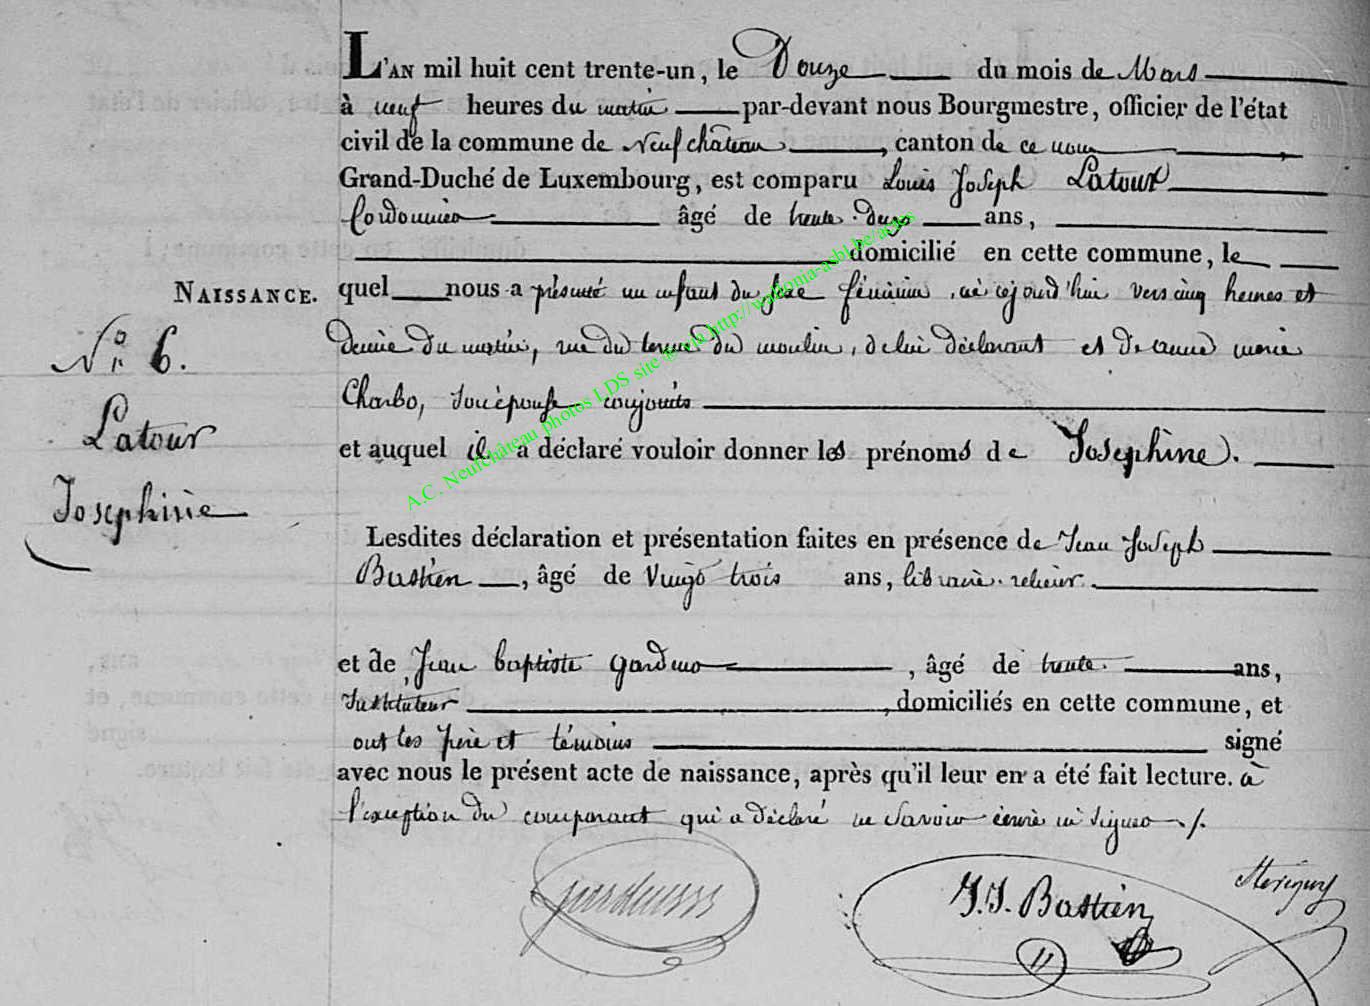 L'AN mil huit cent trente-un, le Douze du mois de Mars
à neuf heures du matin par-devant nous Bourgmestre, officier de l'état
civil de la commune de Neufchâteau, canton de ce nom
Grand-Duché de Luxembourg, est comparu Louis Joseph Latour
Cordonnier âgé de trente-deux ans,
domicilié en cette commune, le
NAISSANCE. quel nous a présenté un enfant du sexe féminin, né cejourd'hui vers cinq heures et
N° 6. demie du matin, rue du du moulin, de lui déclarant et de anne marie
Charbo, son épouse conjoints
Latour
et auquel il a déclaré vouloir donner les prénoms de Josephine.
Josephine
Lesdites déclaration et présentation faites en présence de Jean Joseph
Bastien, âgé de Vingt trois ans, libraire-relieur
et de Jean baptiste, âgé de trente ans,
Instituteur, domiciliés en cette commune, et
ont les père et témoins signé
avec nous le présent acte de naissance, après qu'il leur en a été fait lecture. à
l'exception du comparant qui a déclaré ne savoir écrire ni signer ./.
J.J. Bastien
A.C. Neufchâteau photos LDS site http://wallonia-asbl.be/actes